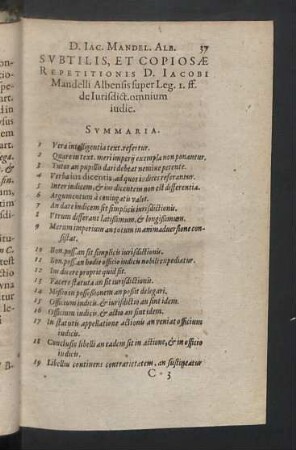 D. IAC. MANDEL. ALB. 37
SVBTILIS, ET COPIOSÆ
REPETITIONIS D. IACOBI
Mandelli Albensis super Leg. 1. ff.
de Iurisdict. omnium
iudic.
SVMMARIA.
1 Vera intelligentia text. refertur.
2 Quare in text. meri imperij exempla non ponantur.
3 Tutor an pupillis dari debeat nemine petente.
4 Verba ius dicentis, ad quos iudices referantur.
5 Inter iudicem, & ius dicentem non est differentia.
6 Argumentum à coniugatis valet.
7 An dare iudicem sit simplicis iurisdictionis.
8 Vtrum differant latissimum, & longissimum.
9 Merum imperium an totum in animaduersione con-
sistat.
10 Bon. poss. an sit simplicis iurisdictionis.
11 Bon. poss. an hodie officio iudicis nobili expediatur.
12 Ius dicere propriè quid sit.
13 Facere statuta an sit iurisdictionis.
14 Missio in possessionem an possit delegari.
15 Officium iudicis, & iurisdictio an sint idem.
16 Officium iudicis, & actio an sint idem.
17 In statutis appellatione actionis an veniat officium
iudicis.
18 Conclusio libelli an eadem sit in actione, & in officio
iudicis.
19 Libellus continens contrarietatem, an sustineatur
C 3
B.